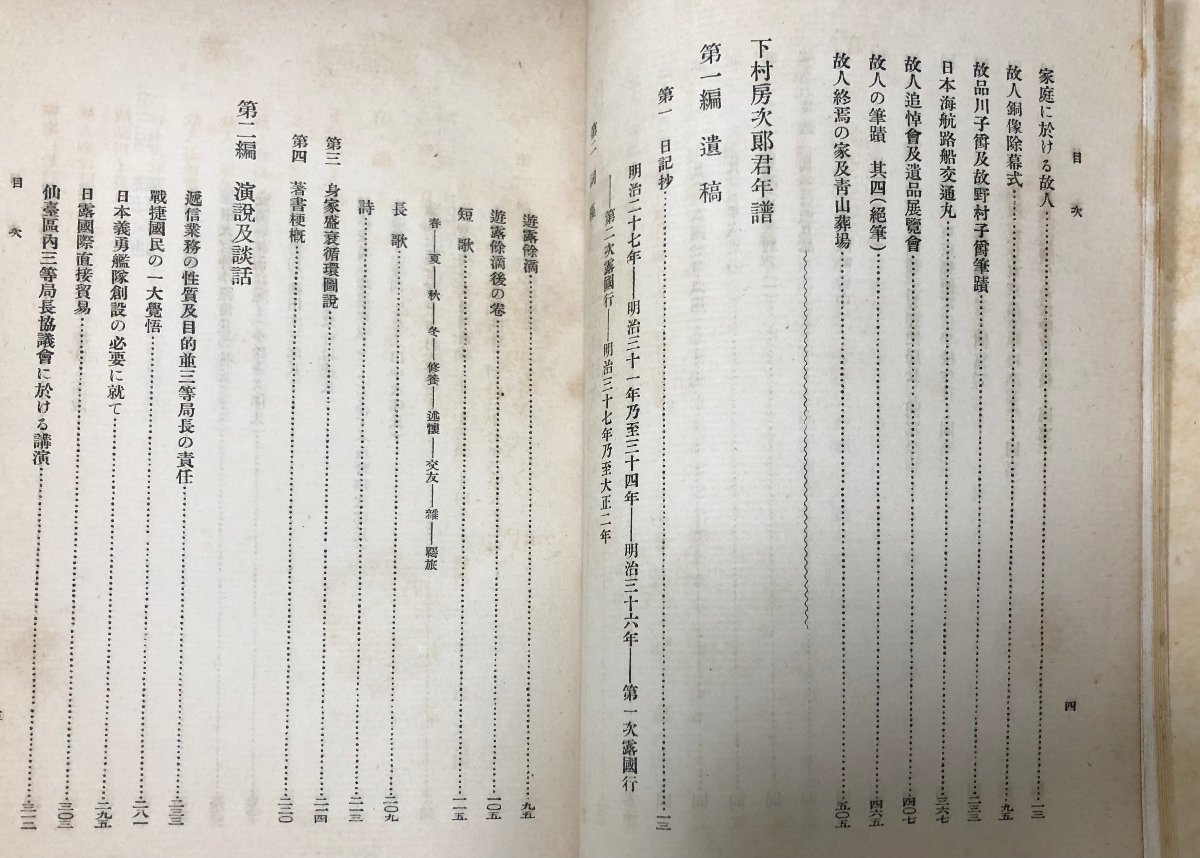 目次
四
家庭に於ける故人……一三
故人銅像除幕式……九五
故品川子爵及故野村子爵筆蹟……一三三
日本海航路船交通丸……三六七
故人追悼會及遺品展覽會……四〇七
故人の筆蹟 其四(絕筆)……四六五
故人終焉の家及青山葬場……五〇五
下村房次郎君年譜
第一編 遺稿
第一 日記抄……一三
明治二十七年――明治三十一年乃至三十四年――明治三十六年――第一次露國行
――第二次露國行――明治三十七年乃至大正二年
第二
遊露餘滴……九五
遊露餘滴後の卷……一〇五
短歌……一一五
春――夏――秋――冬――修養――述懷――交友――雜――羇旅
長歌……二〇九
詩……二一三
第三 身家盛衰循環圖說……二一四
第四 著書梗概……二二〇
第二編 演說及談話
遞信業務の性質及目的並三等局長の責任……二三三
戰捷國民の一大覺悟……二八一
日本義勇艦隊創設の必要に就て……二九五
日露國際直接貿易……三〇三
仙臺區內三等局長協議會に於ける講演……三一二
目次